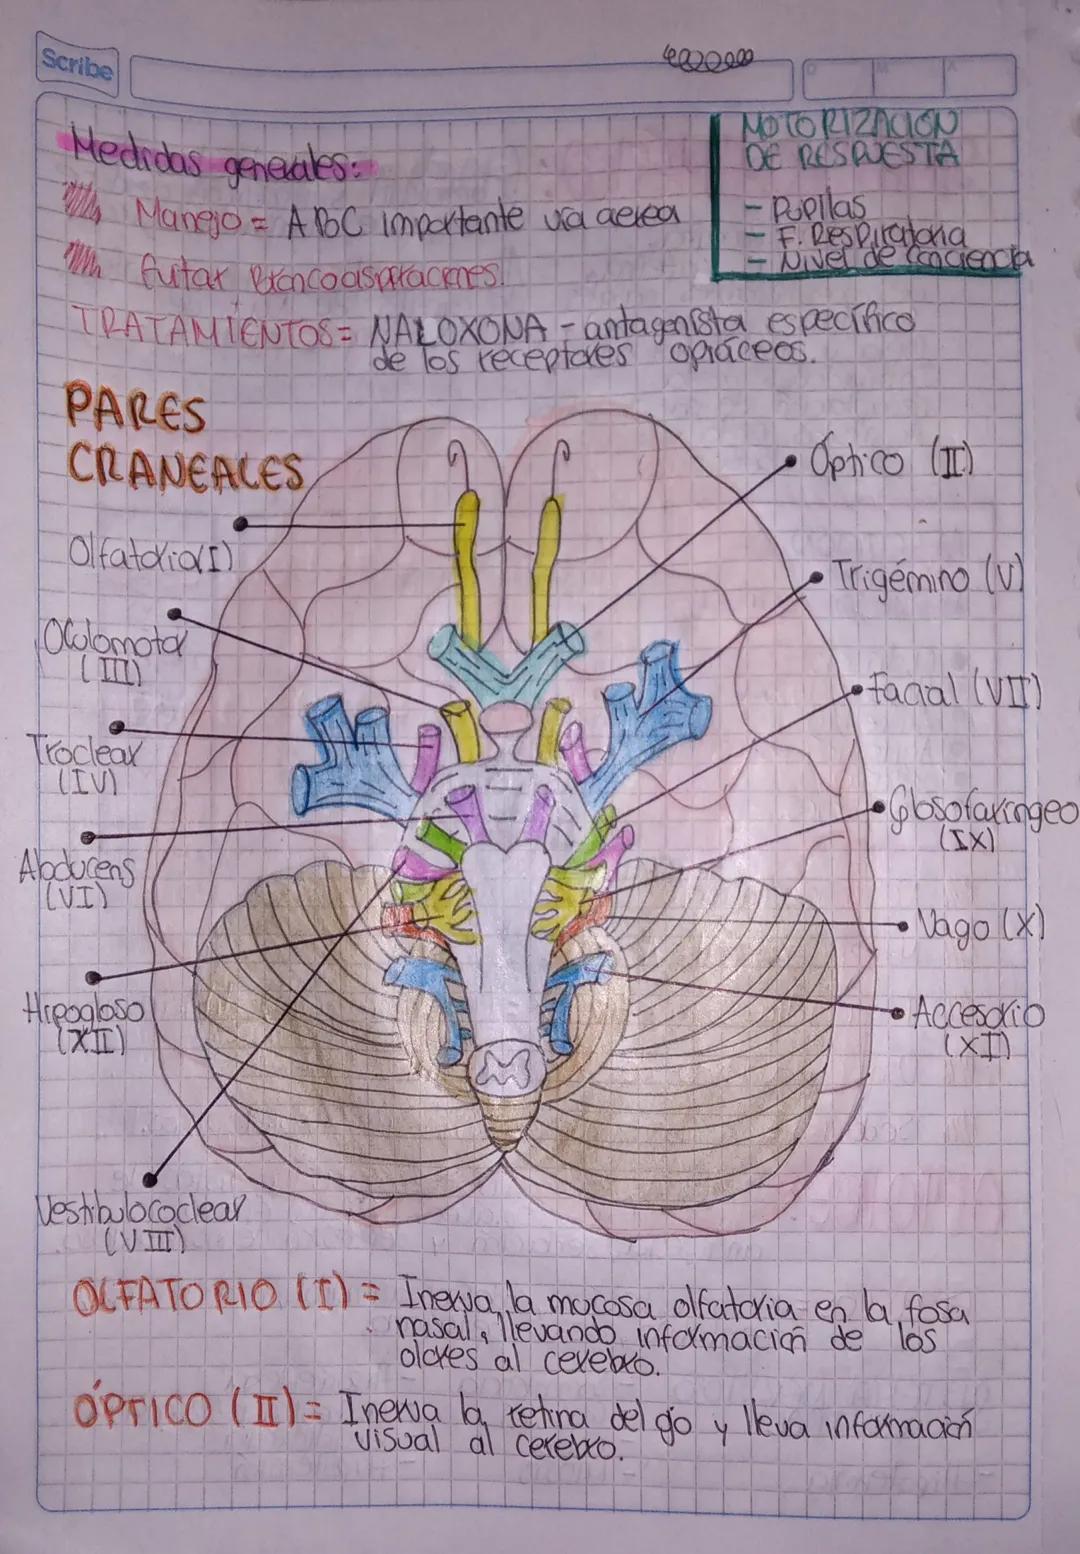 Scribe
MOTORIZACIÓN
DE RESPUESTA
- Pupilas
- F. Respiratoria
- Nivel de conciencia
Medidas generales:
Manejo = ABC importante via aerea
Evitar Broncoaspiraciones.
TRATAMIENTOS = NALOXONA - antagonista específico
de los receptores opiáceos.
PARES
CRANEALES
Óptico (II)
Olfatorio (I)
Trigémino (V)
Oculomotor
(III)
Facial (VII)
Troclear
(IV)
Glosofaríngeo
(IX)
Abducens
(VI)
Vago (X)
Hipogloso
(XII)
Accesorio
(XI)
Vestibulococlear
(VIII)
OLFATORIO (I) = Inerva la mucosa olfatoria en la fosa
nasal, llevando información de los
olores al cerebro.
ÓPTICO (II) = Inerva la retina del ojo y lleva información
visual al cerebro.